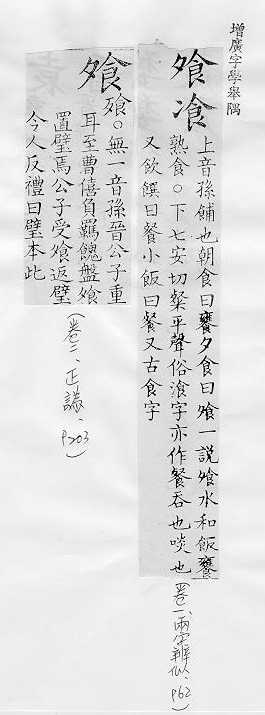 增廣字學舉隅
飧飡
上音孫餔也朝食曰饔夕食曰飧一說飧水和飯饔
熟食。下七安切粲平聲俗湌字亦作餐吞也啖也
又飲饌曰餐小飯曰餐又古食字
(卷一、兩字辨似、P62)
飧
飱。無一音孫晉公子重
耳至曹僖負羈餽盤飧
置璧焉公子受飧返璧
今人反禮曰璧本此
(卷二、正譌、P203)